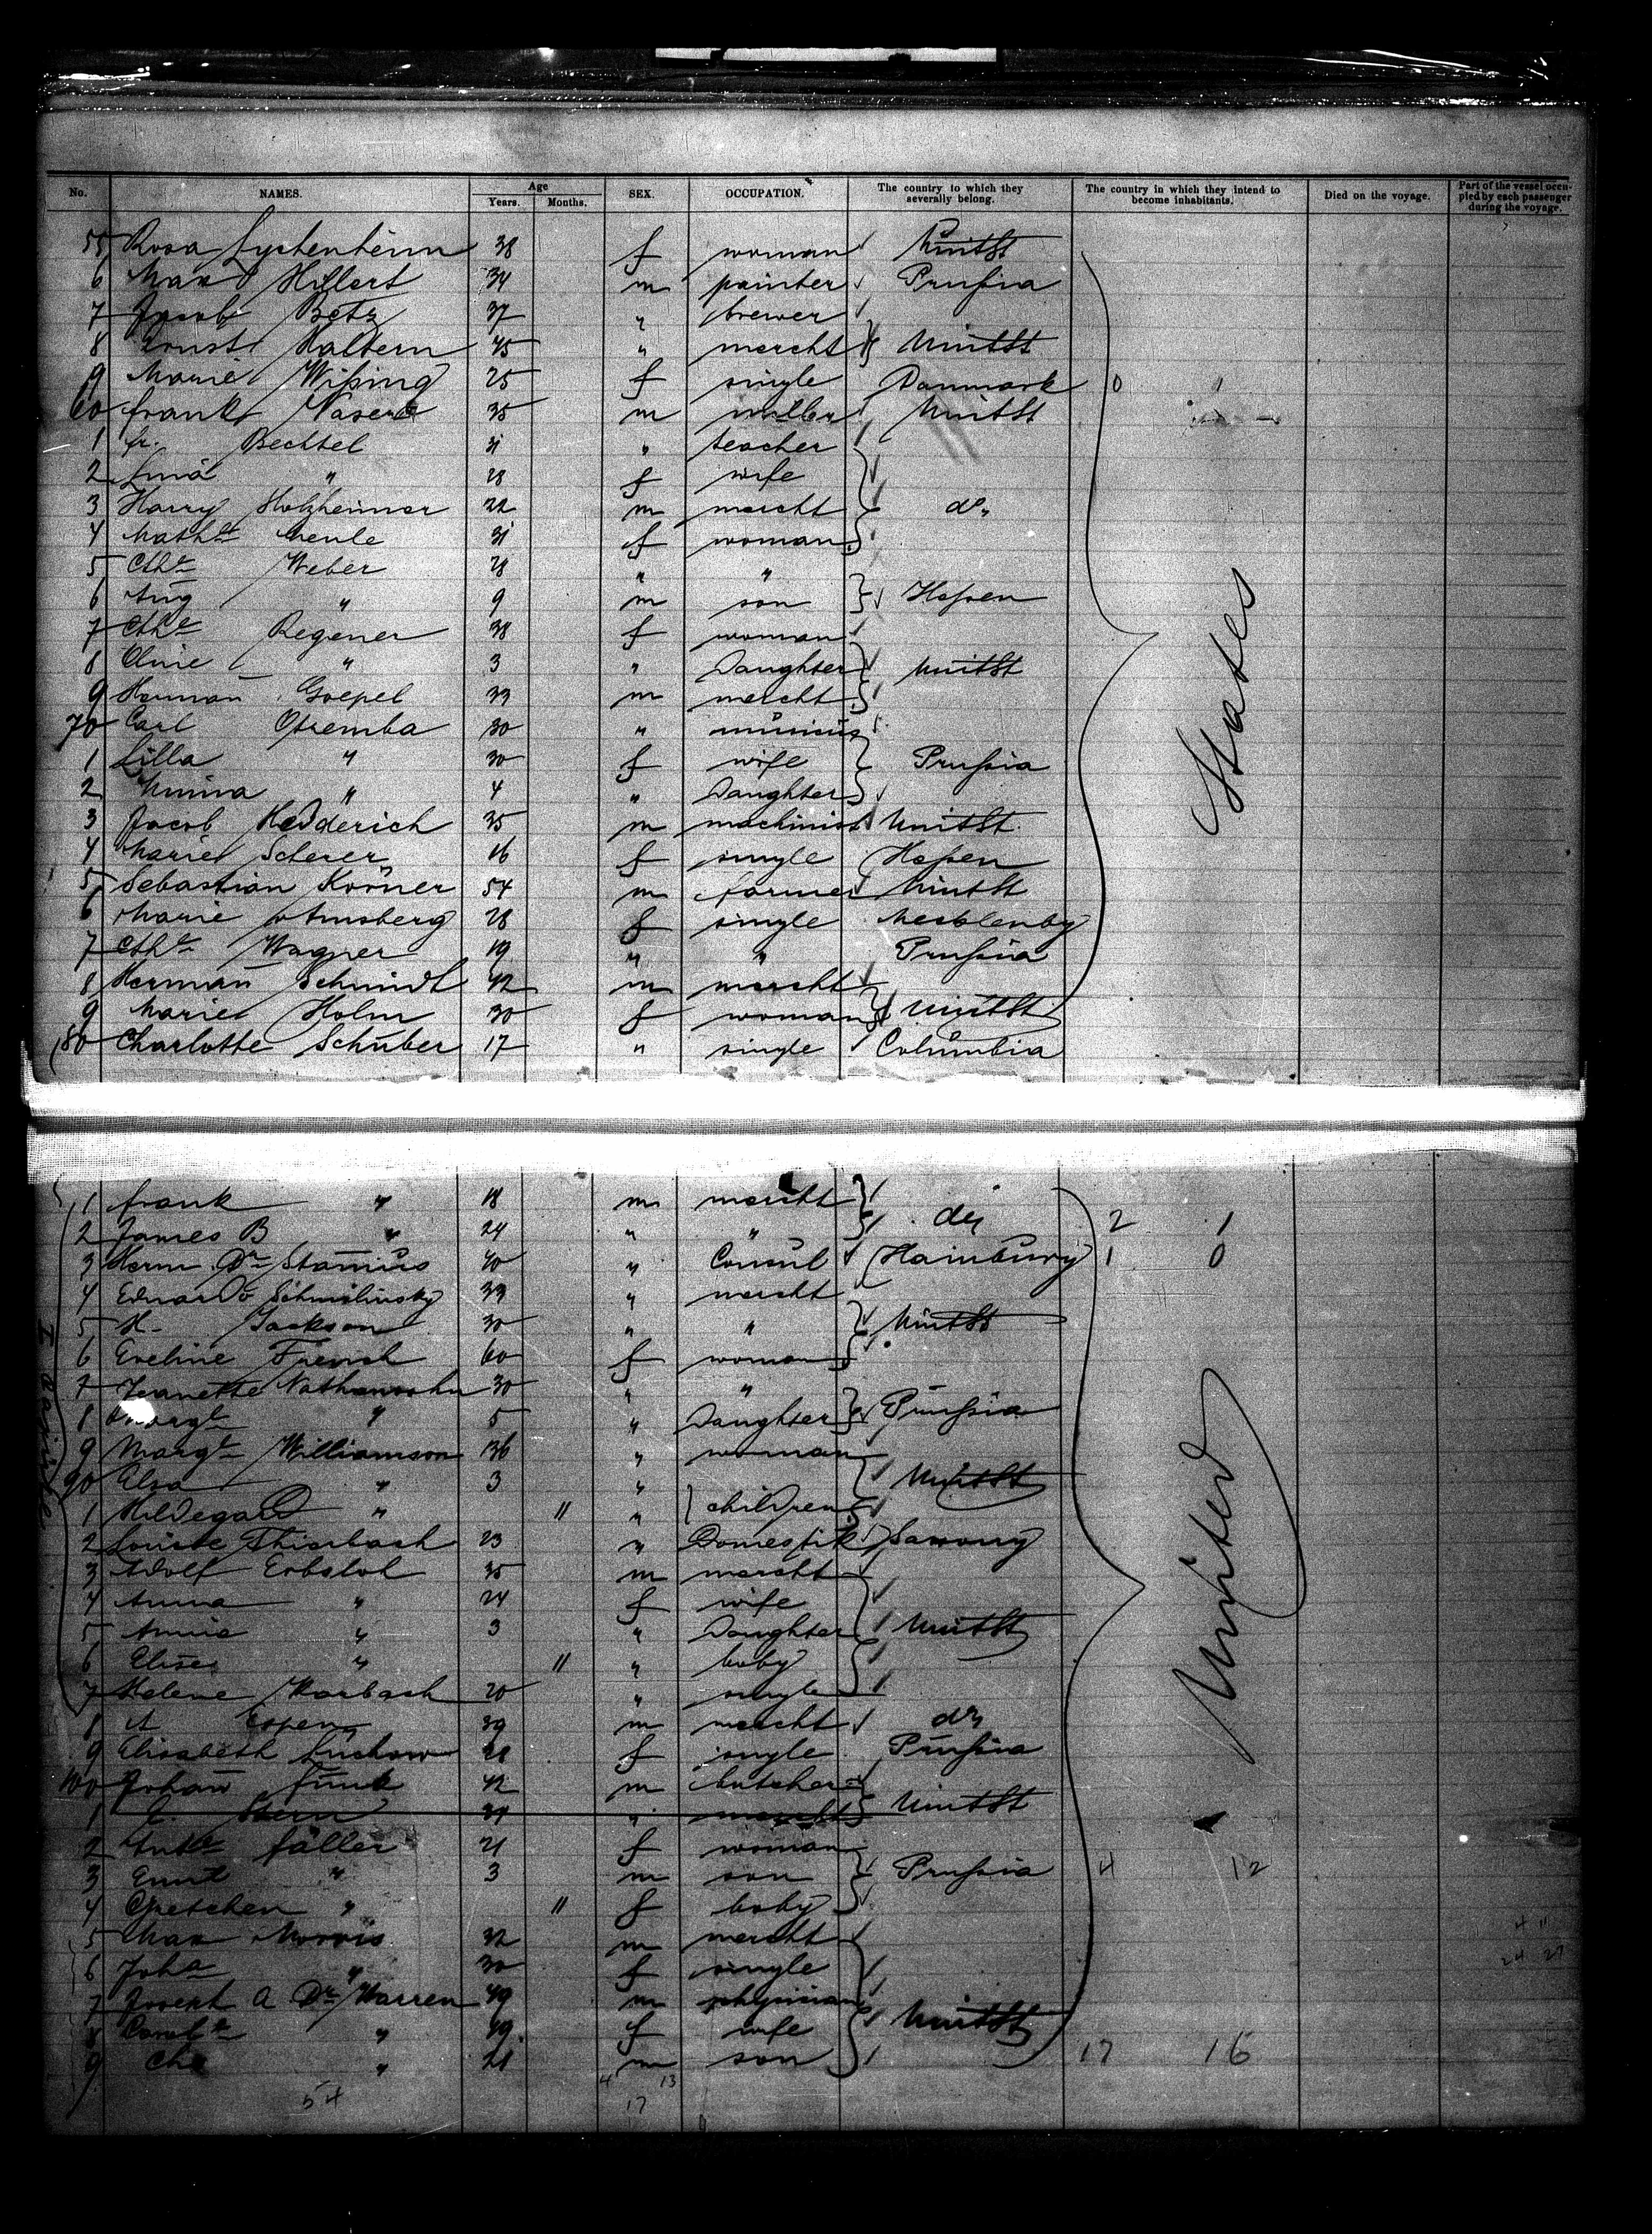 No. NAMES. Age Years. Months. SEX. OCCUPATION. The country to which they severally belong. The country in which they intend to become inhabitants. Died on the voyage. Part of the vessel occupied by each passenger during the voyage.
55 Rosa 38 f woman UnitSt
6 Max Hillert 34 m painter Prussia
7 Jacob Betz 37 " brewer
8 Ernst Haltern 45 " mercht UnitSt
9 Marie Wissing 25 f single Danmark 0 1
60 Frank 35 m miller UnitSt
1 Fr. Bechtel 31 " teacher
2 Lina " 28 f wife
3 Harry Holzheimer 22 m mercht do
4 Mathde Menle 31 f woman
5 Cthe Weber 28 " "
6 Aug " 9 m son Hessen
7 Cthe Regener 38 f woman
8 " 3 " Daughter UnitSt
9 Herman Goepel 33 m mercht
70 Carl Otremba 30 " musicus
1 Lilla " 30 f wife Prussia
2 Minna " 4 " Daughter
3 Jacob Hedderich 35 m machinist UnitSt
4 Marie Scherer 16 f single Hessen
5 Sebastian Körner 54 m farmer UnitSt
6 Marie Amsberg 28 f single Mecklenbg
7 Cthe Wagner 19 " " Prussia
8 Herman Schmidt 42 m mercht
9 Marie Holm 30 f woman UnitSt
80 Charlotte Schuber 17 " single Columbia
States
1 Frank " 18 m mercht
2 James B " 24 " " do 2 1
3 Herm Dr Stamius 40 " Consul Hamburg 1 0
4 Eduardo Schmilinsky 33 " mercht
5 H. Jackson 30 " " UnitSt
6 Eveline French 60 f woman
7 Jeanette Nathansohn 30 " "
8 Margt " 5 " Daughter Prussia
9 Margt Williamson 36 " woman
90 Elsa " 3 " UnitSt
1 Hildegard " 11 " children
2 Louise Thierbach 23 " Domestik Saxony
3 Adolf Erbsloh 35 m mercht
4 Anna " 24 f wife
5 Annie " 3 " Daughter UnitSt
6 Elise " 11 " baby
7 Helene Marbach 20 " single
8 A Espen 39 m mercht do
9 Elisabeth Luchow f single Prussia
100 Johan Funk 42 m butcher
1 E. Stern 34 " mercht UnitSt
2 Ante Faller 21 f woman
3 Ernst " 3 m son Prussia 4 12
4 Gretchen " 11 f baby
5 Max Morris 32 m mercht 4 11
6 Joha " 30 f single 24 27
7 Joseph A Dr Warren 49 m physician
8 Carolt " 49 f wife UnitSt
9 Chs " 21 m son 17 16
54 4 13
17
United